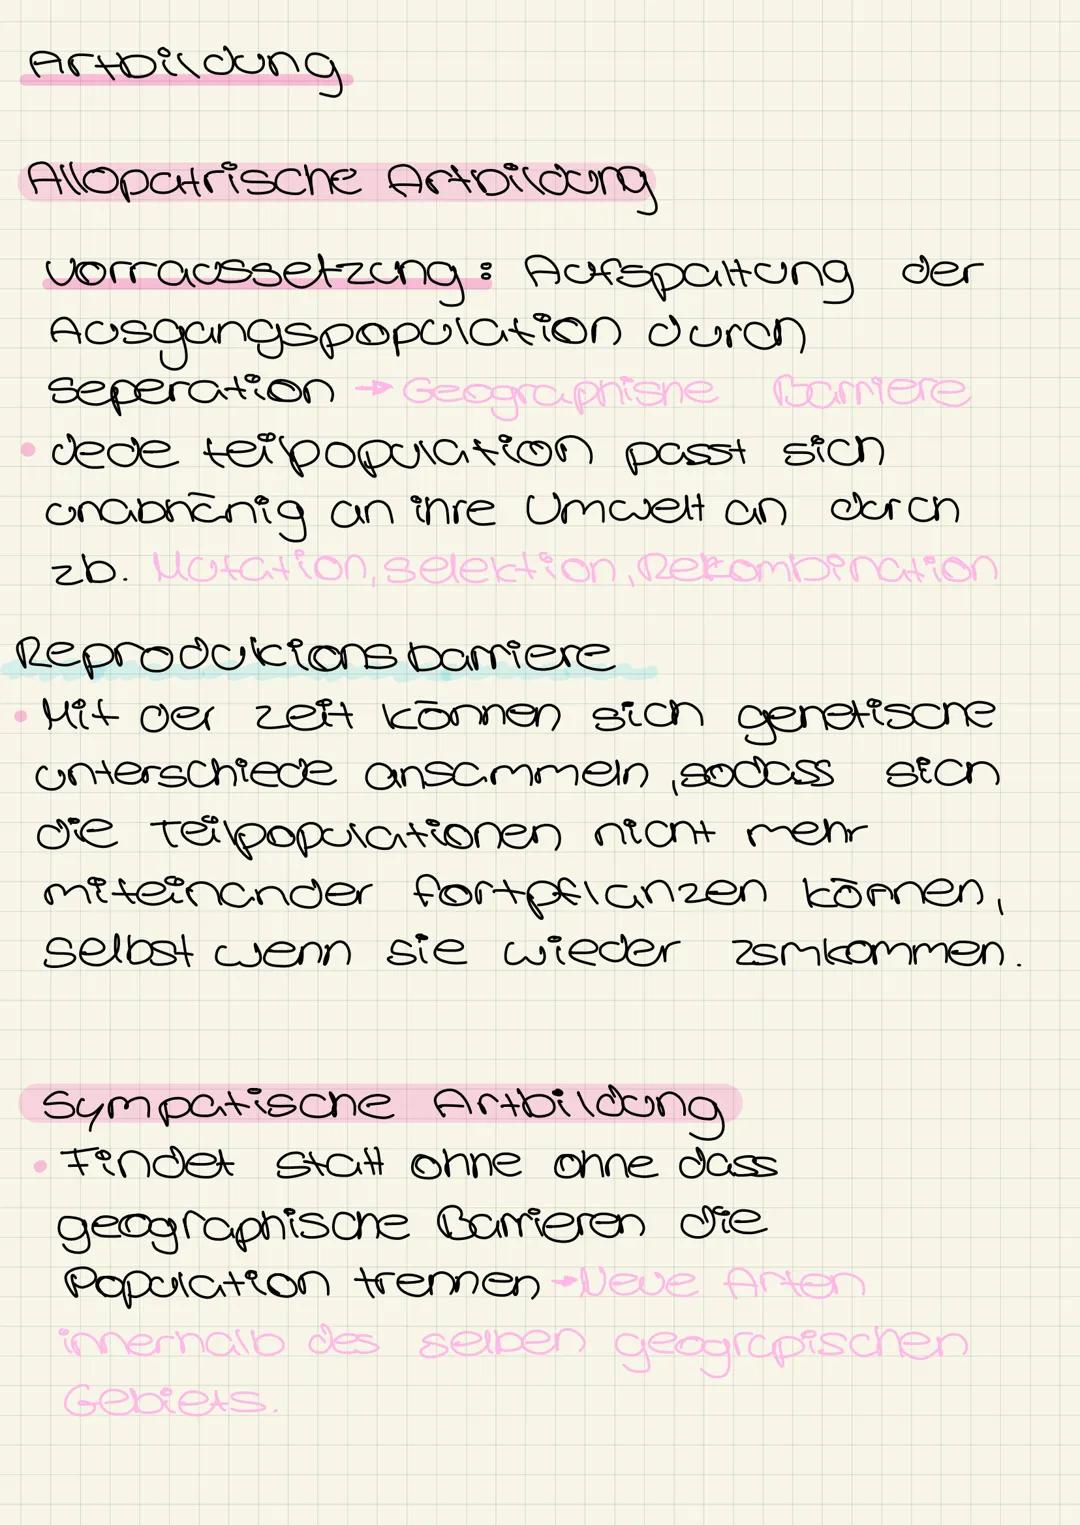 Artbildung
Allopatrische Artbildung
Vorraussetzung: Aufspaltung der
Ausgangspopulation durch
seperation → Geographishe Barriere
• Jede teilpopulation passt sich
unabhänig an ihre Umwelt an durch
zb. Mutation, selektion, Rekombination
Reproduktionsbarriere
• Mit der zeit können sich genetische
unterschiede ansammeln, sodass sich
die Teilpopulationen nicht mehr
miteinander fortpflanzen können,
selbst wenn sie wieder zsmkommen.
Sympatische Artbildung
• Findet statt ohne ohne dass
geographische Barrieren die
Population trennen → Neue Arten
innerhalb des selben geograpischen
Gebiets.